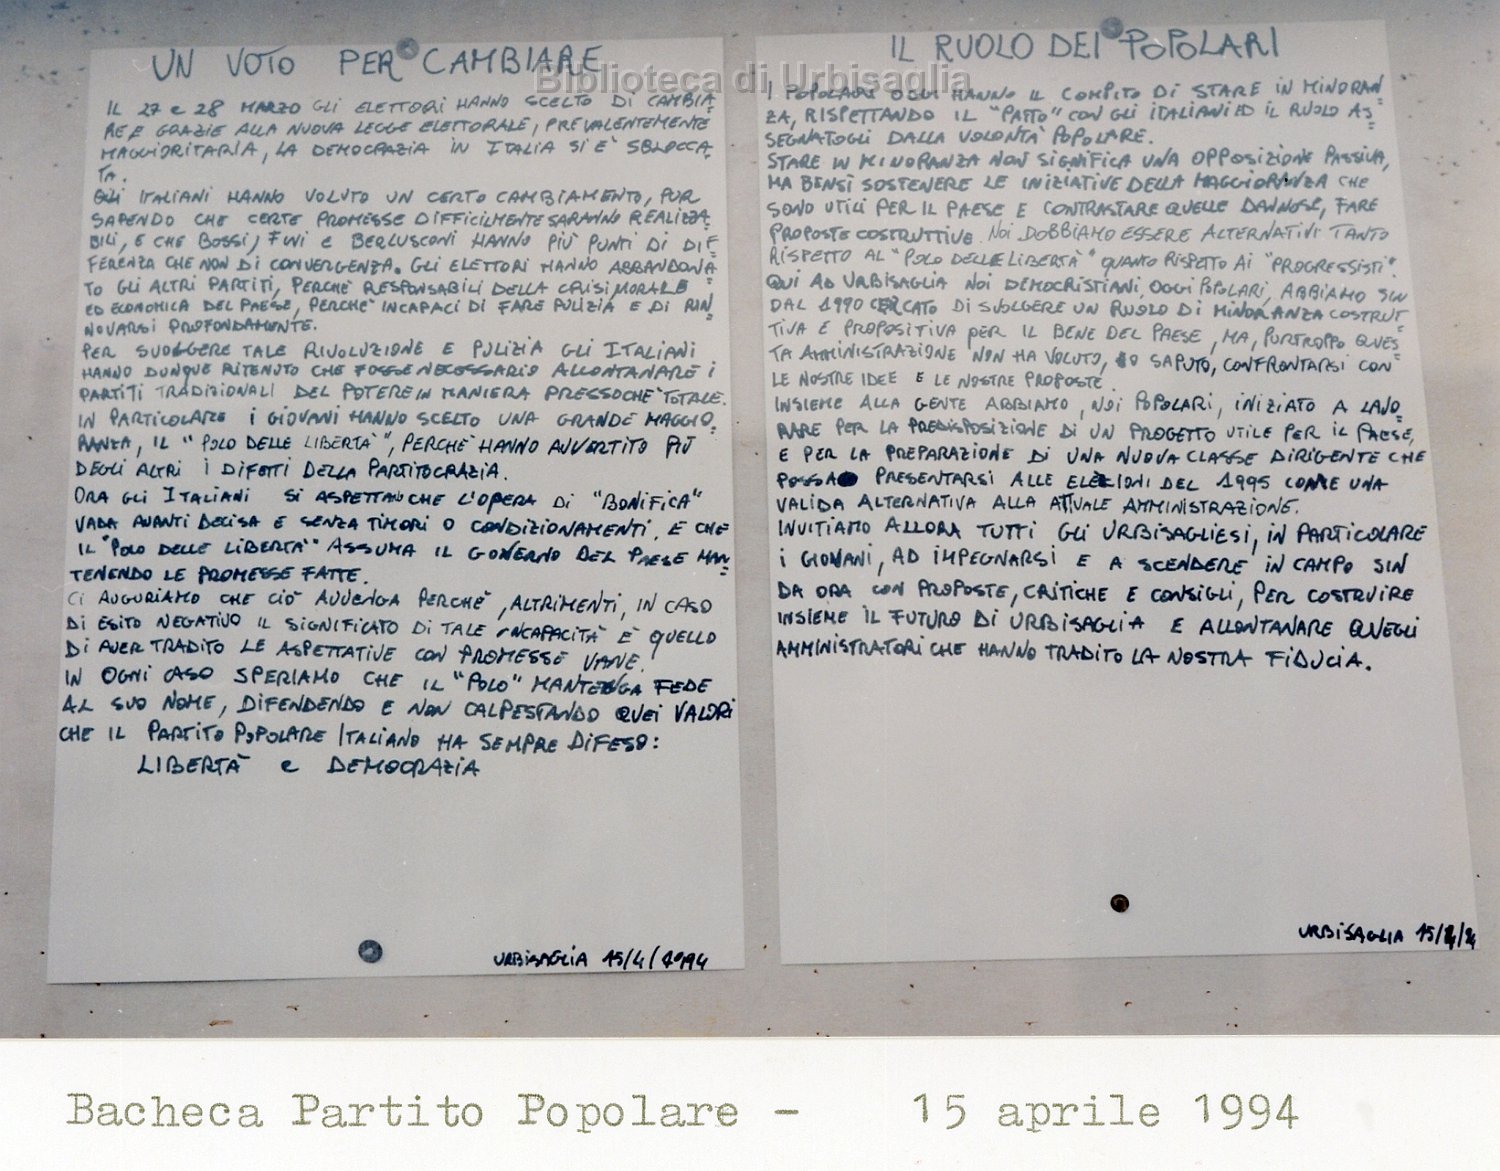 UN VOTO PER CAMBIARE
IL 27 e 28 MARZO GLI ELETTORI HANNO SCELTO DI CAMBIA=
RE E GRAZIE ALLA NUOVA LEGGE ELETTORALE, PREVALENTEMENTE
MAGGIORITARIA, LA DEMOCRAZIA IN ITALIA SI E' SBLOCCA=
TA.
GLI ITALIANI HANNO VOLUTO UN CERTO CAMBIAMENTO, PUR
SAPENDO CHE CERTE PROMESSE DIFFICILMENTE SARANNO REALIZZA=
BILI, E CHE BOSSI, FINI e BERLUSCONI HANNO PIÙ PUNTI DI DIF=
FERENZA CHE NON DI CONVERGENZA. GLI ELETTORI HANNO ABBANDONA=
TO GLI ALTRI PARTITI, PERCHÈ RESPONSABILI DELLA CRISI MORALE
ED ECONOMICA DEL PAESE, PERCHE' INCAPACI DI FARE PULIZIA E DI RIN=
NOVARSI PROFONDAMENTE.
PER SVOLGERE TALE RIVOLUZIONE E PULIZIA GLI ITALIANI
HANNO DUNQUE RITENUTO CHE FOSSE NECESSARIO ALLONTANARE I
PARTITI TRADIZIONALI DEL POTERE IN MANIERA PRESSOCHÈ TOTALE.
IN PARTICOLARE I GIOVANI HANNO SCELTO UNA GRANDE MAGGIO=
RANZA, IL "POLO DELLE LIBERTÀ", PERCHÈ HANNO AVVERTITO PIÙ
DEGLI ALTRI I DIFETTI DELLA PARTITOCRAZIA.
ORA GLI ITALIANI SI ASPETTANO CHE L'OPERA DI "BONIFICA"
VADA AVANTI DECISA E SENZA TIMORI O CONDIZIONAMENTI. E CHE
IL "POLO DELLE LIBERTÀ" ASSUMA IL GOVERNO DEL PAESE MAN=
TENENDO LE PROMESSE FATTE.
CI AUGURIAMO CHE CIÒ AVVENGA PERCHÈ, ALTRIMENTI, IN CASO
DI ESITO NEGATIVO IL SIGNIFICATO DI TALE INCAPACITÀ È QUELLO
DI AVER TRADITO LE ASPETTATIVE CON PROMESSE VANE.
IN OGNI CASO SPERIAMO CHE IL "POLO" MANTENGA FEDE
AL SUO NOME, DIFENDENDO E NON CALPESTANDO QUEI VALORI
CHE IL PARTITO POPOLARE ITALIANO HA SEMPRE DIFESO:
LIBERTÀ e DEMOCRAZIA
URBISAGLIA 15/4/1994
IL RUOLO DEI POPOLARI
I POPOLARI OGGI HANNO IL COMPITO DI STARE IN MINORAN=
ZA, RISPETTANDO IL "PATTO" CON GLI ITALIANI ED IL RUOLO AS=
SEGNATOGLI DALLA VOLONTÀ POPOLARE.
STARE IN MINORANZA NON SIGNIFICA UNA OPPOSIZIONE PASSIVA,
MA BENSÌ SOSTENERE LE INIZIATIVE DELLA MAGGIORANZA CHE
SONO UTILI PER IL PAESE E CONTRASTARE QUELLE DANNOSE, FARE
PROPOSTE COSTRUTTIVE. NOI DOBBIAMO ESSERE ALTERNATIVI TANTO
RISPETTO AL "POLO DELLE LIBERTÀ" QUANTO RISPETTO AI "PROGRESSISTI".
QUI AD URBISAGLIA NOI DEMOCRISTIANI, OGGI POPOLARI, ABBIAMO SIN
DAL 1990 CERCATO DI SVOLGERE UN RUOLO DI MINORANZA COSTRUT=
TIVA E PROPOSITIVA PER IL BENE DEL PAESE, MA, PURTROPPO QUES=
TA AMMINISTRAZIONE NON HA VOLUTO, O SAPUTO, CONFRONTARSI CON
LE NOSTRE IDEE E LE NOSTRE PROPOSTE.
INSIEME ALLA GENTE ABBIAMO, NOI POPOLARI, INIZIATO A LAVO=
RARE PER LA PREDISPOSIZIONE DI UN PROGETTO UTILE PER IL PAESE,
E PER LA PREPARAZIONE DI UNA NUOVA CLASSE DIRIGENTE CHE
POSSA PRESENTARSI ALLE ELEZIONI DEL 1995 COME UNA
VALIDA ALTERNATIVA ALLA ATTUALE AMMINISTRAZIONE.
INVITIAMO ALLORA TUTTI GLI URBISAGLIESI, IN PARTICOLARE
I GIOVANI, AD IMPEGNARSI E A SCENDERE IN CAMPO SIN
DA ORA CON PROPOSTE, CRITICHE E CONSIGLI, PER COSTRUIRE
INSIEME IL FUTURO DI URBISAGLIA E ALLONTANARE QUEGLI
AMMINISTRATORI CHE HANNO TRADITO LA NOSTRA FIDUCIA.
URBISAGLIA
Biblioteca di Urbisaglia
Bacheca Partito Popolare - 15 aprile 1994